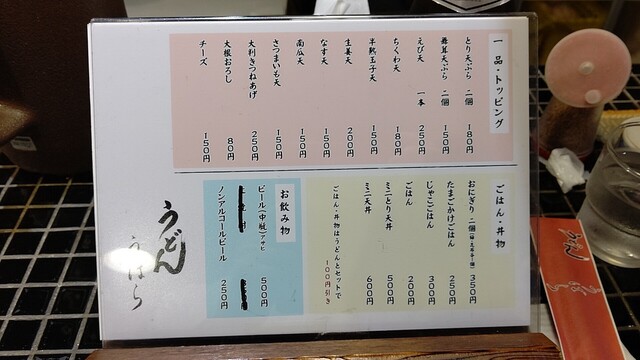 一品・トッピング
とり天ぷら 二個 180円
舞茸天ぷら 二個 150円
えび天 一本 250円
ちくわ天 180円
半熟玉子天 150円
生姜天 200円
なす天 150円
南瓜天 150円
さつまいも天 150円
大判きつねあげ 250円
大根おろし 80円
チーズ 150円
ごはん・丼物
おにぎり 二個 350円
たまごかけごはん 250円
じゃこごはん 300円
ごはん 200円
ミニとり天丼 500円
ミニ天丼 600円
ごはん・丼物はうどんとセットで
100円引き
お飲み物
ビール(中瓶)アサヒ 500円
ノンアルコールビール 250円
うどん
うはら